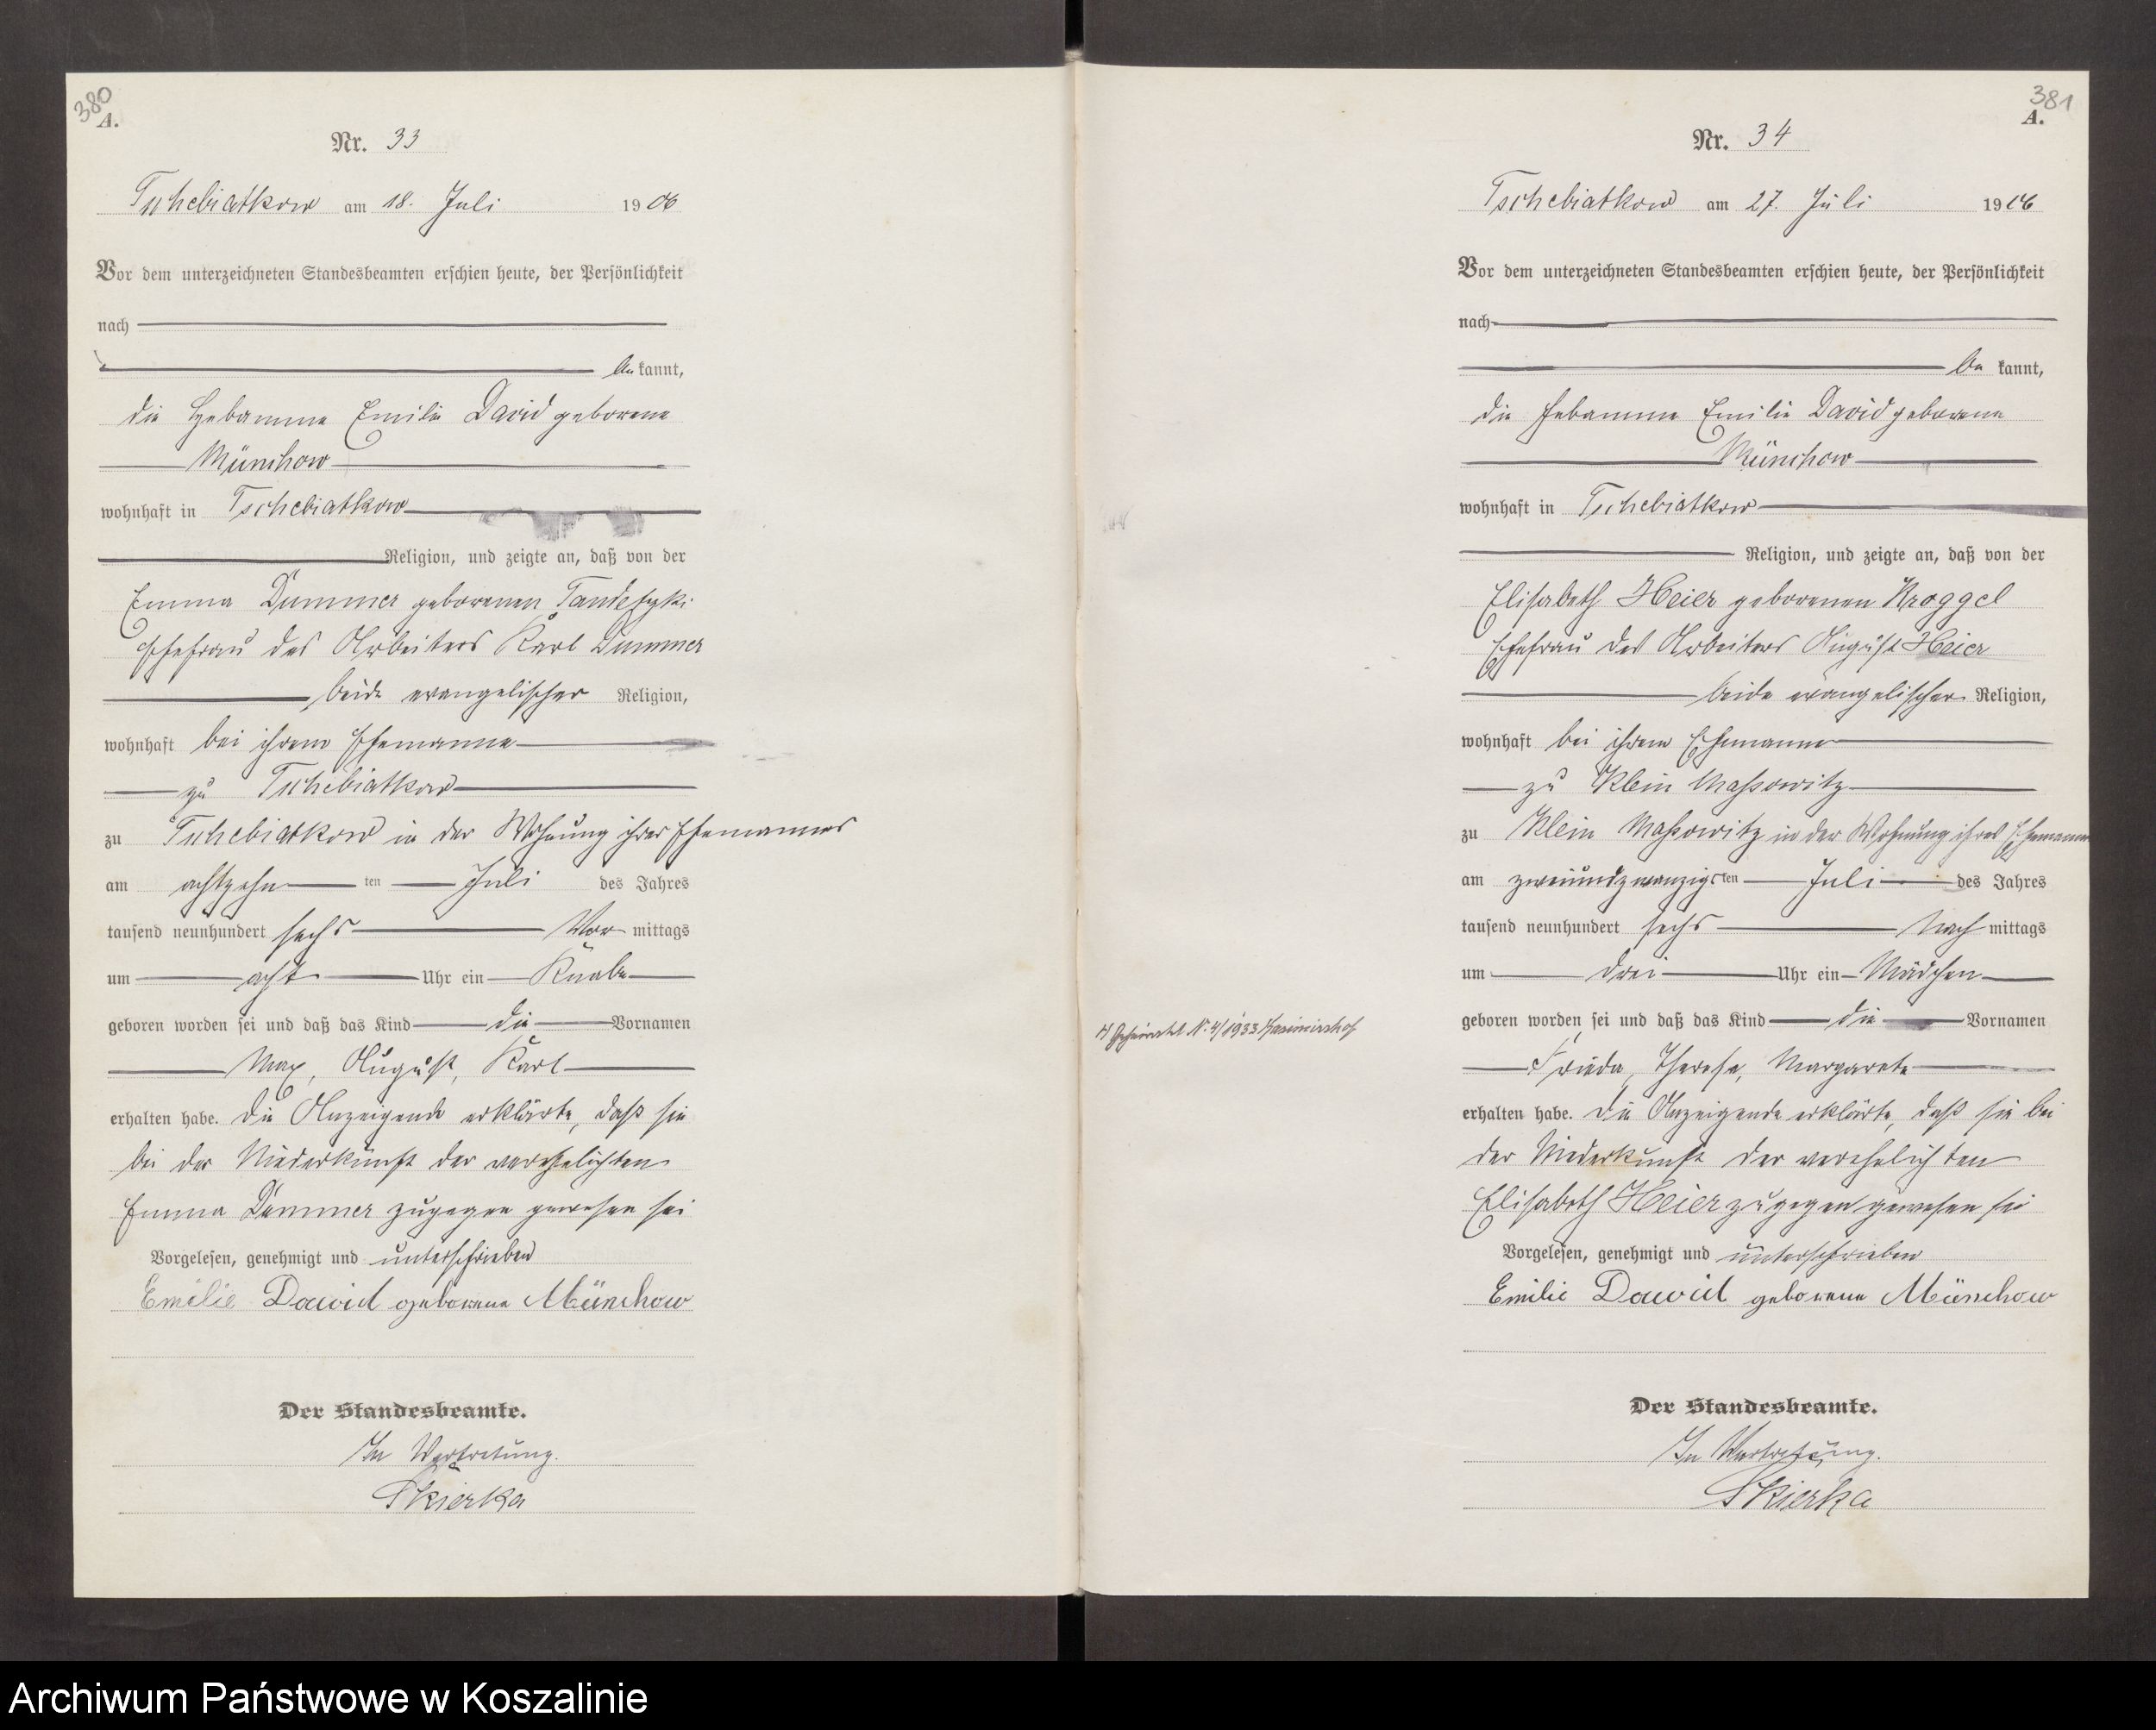 380
A.
Nr. 33
Tschebiatkow am 18. Juli 1906
Vor dem unterzeichneten Standesbeamten erschien heute, der Persönlichkeit
nach
be kannt,
die Hebamme Emilie David geborene
Münchow
wohnhaft in Tschebiatkow
Religion, und zeigte an, daß von der
Emma Dummer geborenen
Ehefrau des Arbeiters Karl Dummer
beide evangelischer Religion,
wohnhaft bei ihrem Ehemanne
zu Tschebiatkow
zu Tschebiatkow in der Wohnung ihres Ehemannes
am achtzehn ten Juli des Jahres
tausend neunhundert sechs Vor mittags
um acht Uhr ein Knabe
geboren worden sei und daß das Kind die Vornamen
Max, August, Karl
erhalten habe. Die Anzeigende erklärte, daß sie
bei der Niederkunft der verehelichten
Emma Dummer zugegen gewesen sei
Vorgelesen, genehmigt und unterschrieben
Emilie Dawid geborene Münchow
Der Standesbeamte.
In Vertretung.
Skierka
381
A.
Nr. 34
Tschebiatkow am 27. Juli 1906
Vor dem unterzeichneten Standesbeamten erschien heute, der Persönlichkeit
nach
be kannt,
die Hebamme Emilie David geborene
Münchow
wohnhaft in Tschebiatkow
Religion, und zeigte an, daß von der
Elisabeth Heier geborenen Kroggel
Ehefrau des Arbeiters August Heier
beide evangelischer Religion,
wohnhaft bei ihrem Ehemanne
zu Klein Massowitz
zu Klein Massowitz in der Wohnung ihres Ehemannes
am zweiundzwanzigsten Juli des Jahres
tausend neunhundert sechs Nach mittags
um drei Uhr ein Mädchen
geboren worden sei und daß das Kind die Vornamen
Frieda, Therese, Margarete
erhalten habe. Die Anzeigende erklärte, daß sie bei
der Niederkunft der verehelichten
Elisabeth Heier zugegen gewesen sei
Vorgelesen, genehmigt und unterschrieben
Emilie Dawid geborene Münchow
Der Standesbeamte.
In Vertretung.
Skierka
Geheiratet N. 4/1933
Archiwum Państwowe w Koszalinie